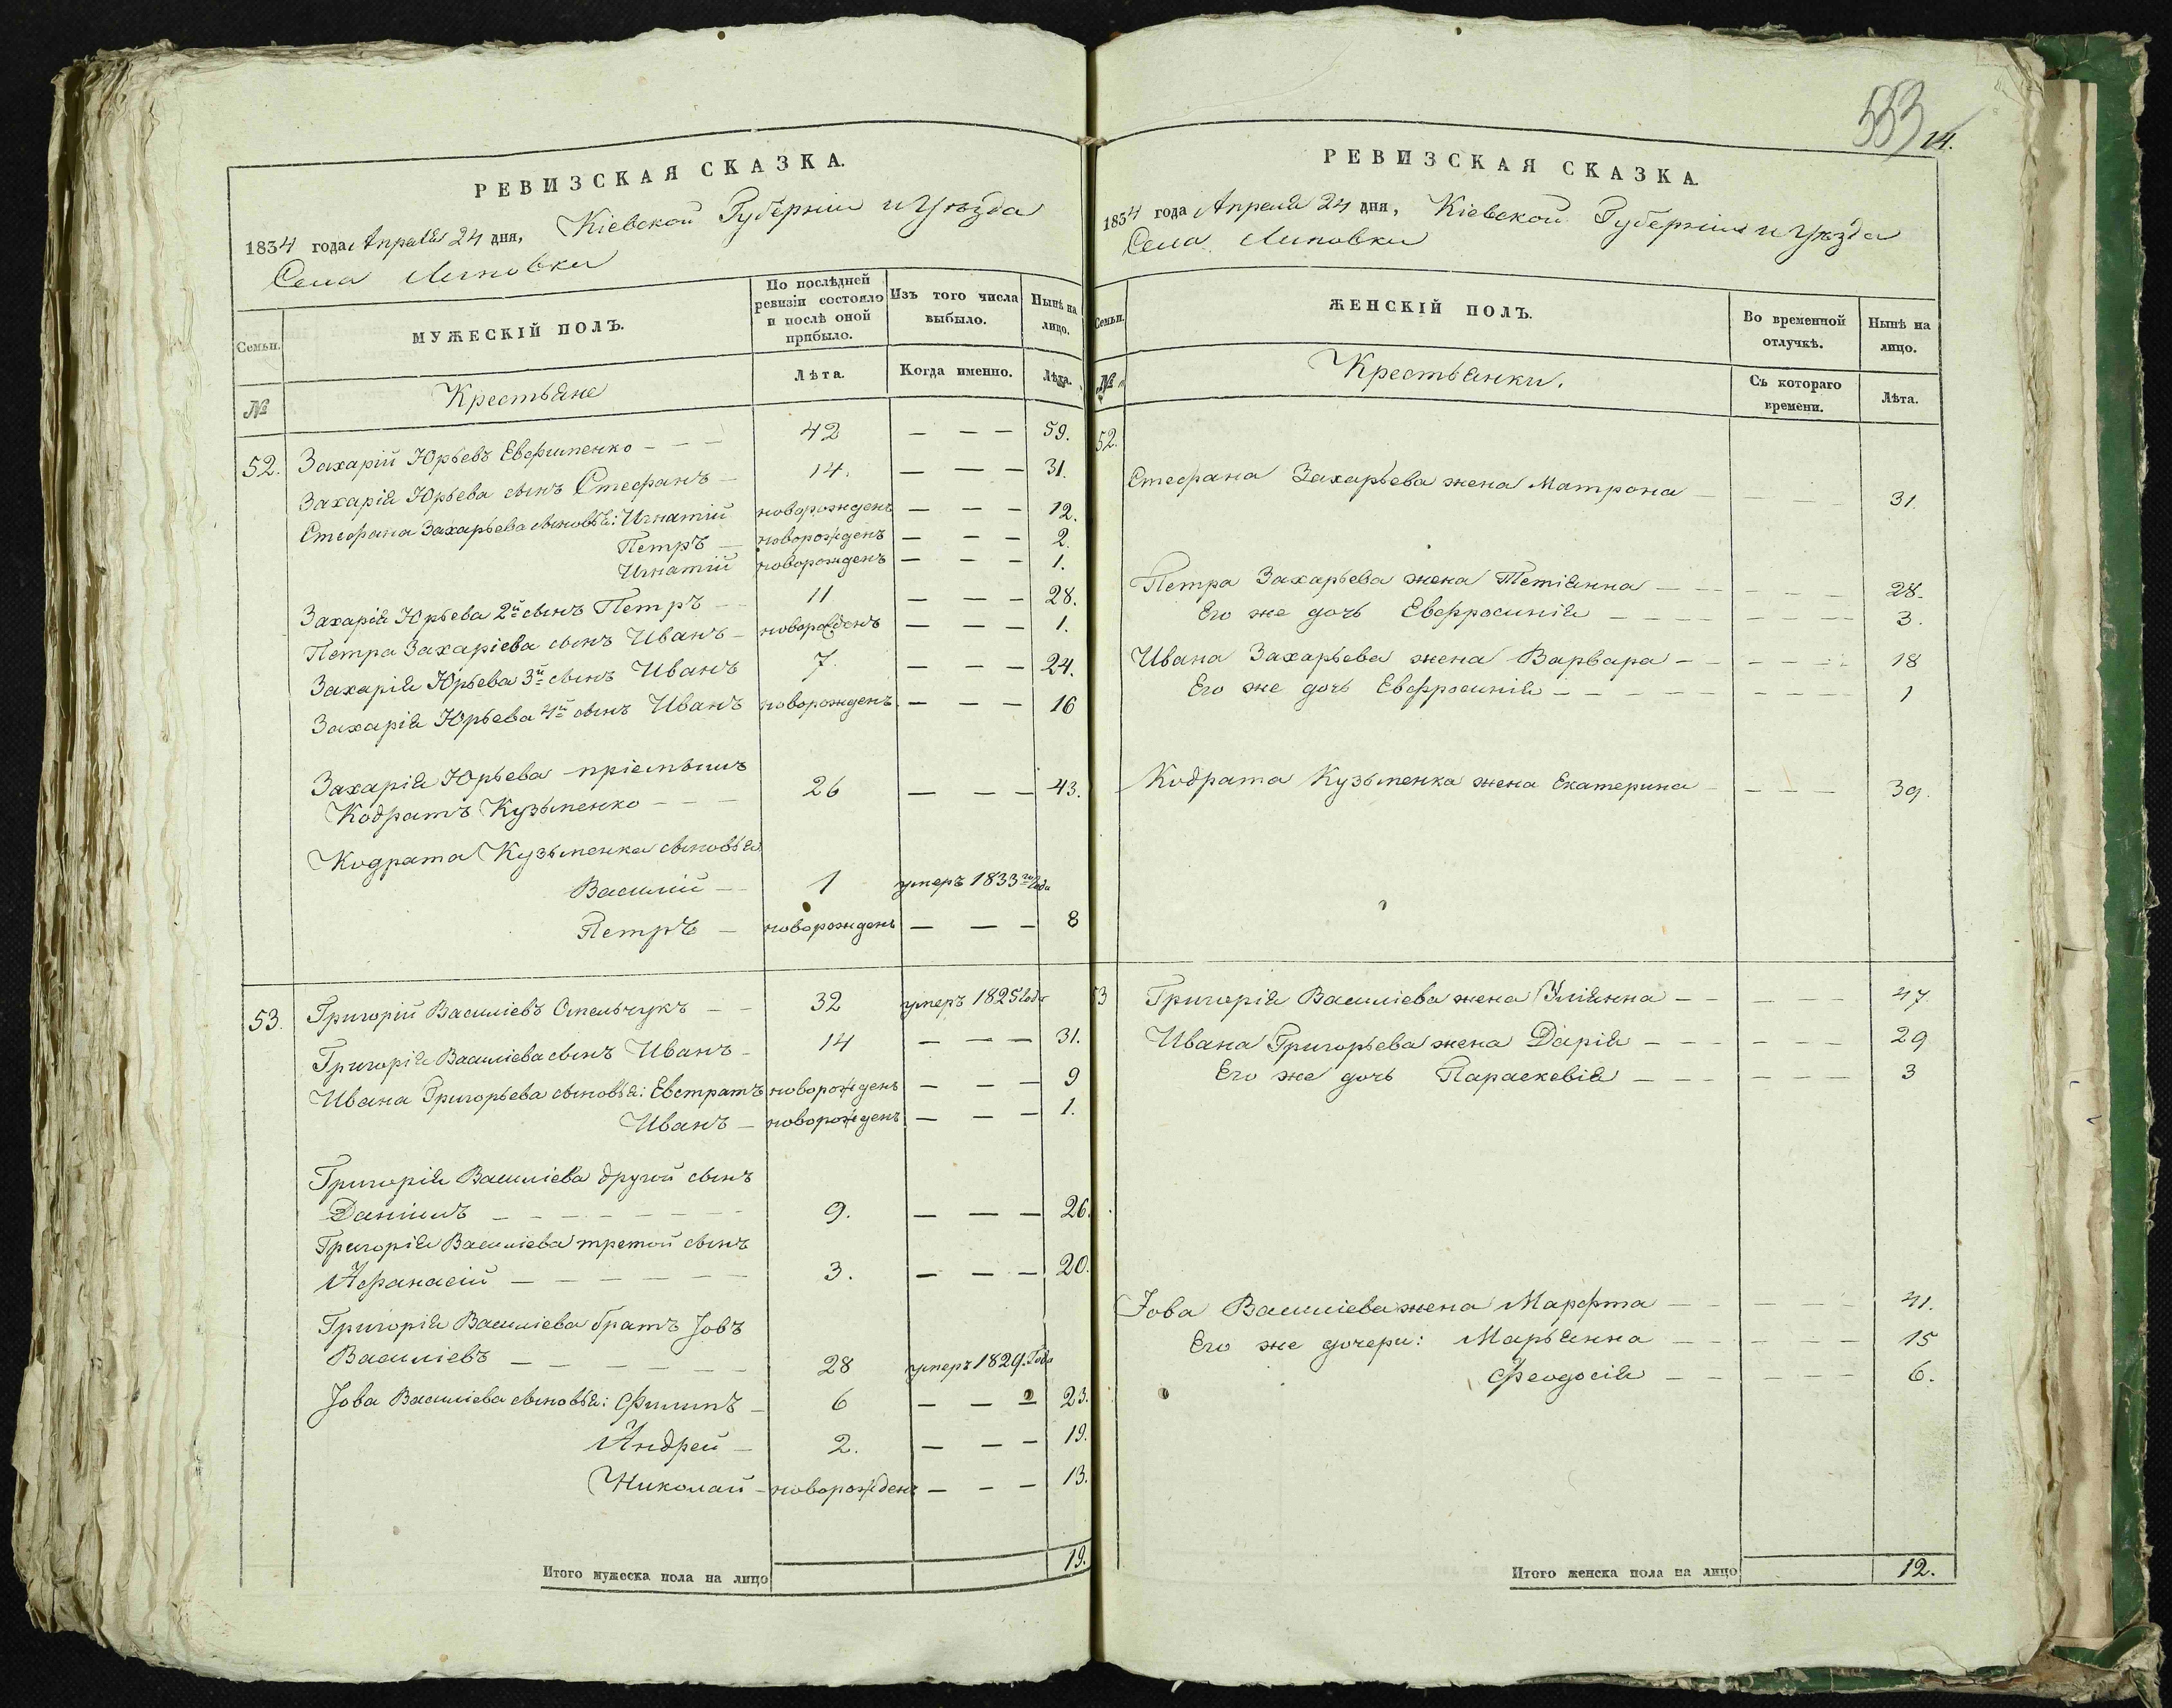 РЕВИЗСКАЯ СКАЗКА.
1834 года Апреля 24 дня, Кіевской Губерніи и Уѣзда
Села Липовки
Семьи. МУЖЕСКІЙ ПОЛЪ. По послѣдней ревизіи состояло и послѣ оной прибыло. Изъ того числа выбыло. Нынѣ на лицо.
№ Крестьяне Лѣта. Когда именно. Лѣта.
52. Захарій Юрьевъ Евфименко - - - 42 — — — 59.
Захарія Юрьева сынъ Стефанъ - 14. — — — 31.
Стефана Захарьева сыновья: Игнатій новорожденъ — — — 12.
Петръ — новорожденъ — — — 2.
Игнатій новорожденъ — — — 1.
Захарія Юрьева 2й сынъ Петръ - - 11 — — — 28.
Петра Захаріева сынъ Иванъ - новорожденъ — — — 1.
Захарія Юрьева 3й сынъ Иванъ 7. — — — 24.
Захарія Юрьева 4й сынъ Иванъ новорожденъ — — — 16
Захарія Юрьева пріемышъ
Кодратъ Кузьменко - - - 26 — — — 43.
Кодрата Кузьменка сыновья
Василій — 1 умеръ 1833го Года
Петръ — новорожденъ — — — 8
53. Григорій Василіевъ Омельчукъ - - 32 умеръ 1825 Года
Григорія Василіева сынъ Иванъ - 14 — — — 31.
Ивана Григорьева сыновья: Евстратъ новорожденъ — — — 9
Иванъ — новорожденъ — — — 1.
Григорія Василіева другой сынъ
Даніилъ - - - - - - 9. — — — 26.
Григорія Василіева третой сынъ
Афанасій - - - - - - 3. — — — 20.
Григорія Василіева братъ Іовъ
Василіевъ - - - - - - 28 умеръ 1829. Года
Іова Василіева сыновья: Филипъ - 6 — — — 23.
Андрей - 2. — — — 19.
Николай - новорожденъ — — — 13.
Итого мужеска пола на лицо 19.
553 14.
РЕВИЗСКАЯ СКАЗКА.
1834 года Апреля 24 дня, Кіевской Губерніи и Уѣзда
Села Липовки
Семьи. ЖЕНСКІЙ ПОЛЪ. Во временной отлучкѣ. Нынѣ на лицо.
№ Крестьянки. Съ котораго времени. Лѣта.
52.
Стефана Захарьева жена Матрона - - - - 31.
Петра Захарьева жена Тетіянна - - - - 28.
Его же дочь Евфросинія - - - - 3.
Ивана Захарьева жена Варвара - - - - 18
Его же дочь Евфросинія - - - - 1
Кодрата Кузьменка жена Екатерина - - - - 39.
53 Григорія Василіева жена Уліянна - - - - 47
Ивана Григорьева жена Дарія - - - - 29
Его же дочь Параскевія - - - - 3
Іова Василіева жена Марфта - - - - 41.
Его же дочери: Марьянна - - - - 15
Феодосія - - - - 6.
Итого женска пола на лицо 12.